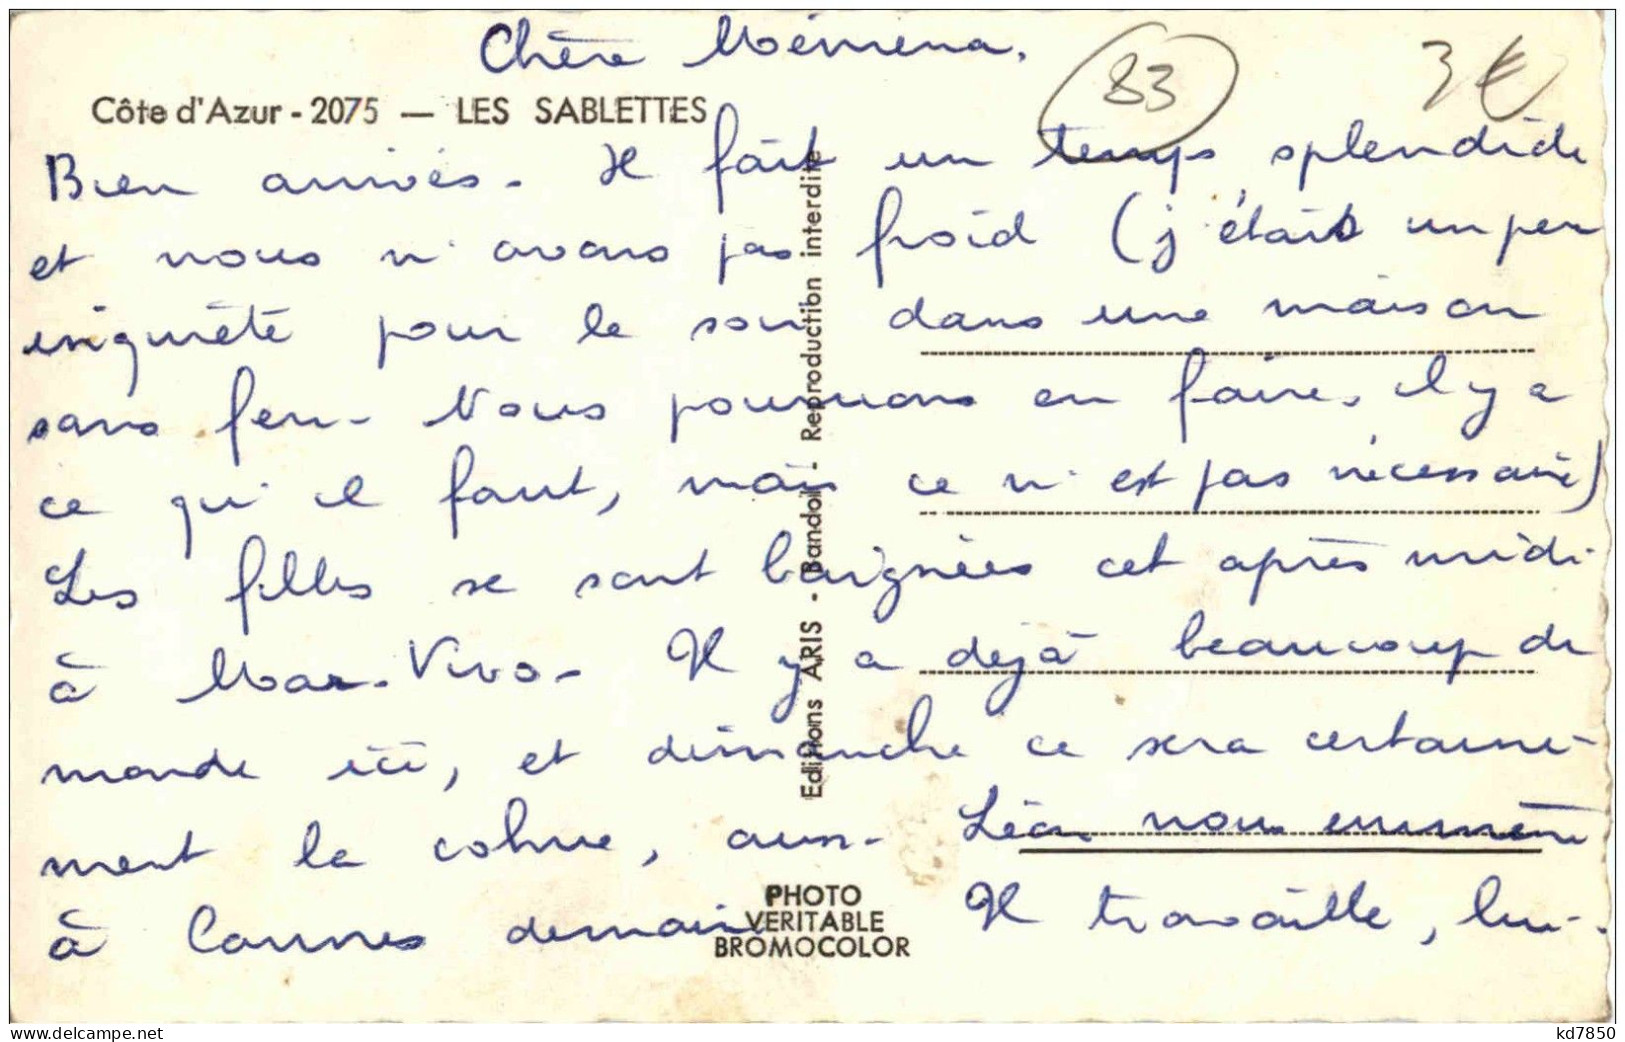 Chère Mémena,
83
3€
Côte d'Azur - 2075 — LES SABLETTES
Bien arrivés. Il fait un temps splendide
et nous n'avons pas froid (j'étais un peu
inquiète pour le soir dans une maison
sans feu. Nous pourrions en faire, il y a
ce qu'il faut, mais ce n'est pas nécessaire)
Les filles se sont baignées cet après midi
à Mar-Vivo. Il y a déjà beaucoup de
monde ici, et dimanche ce sera certaine-
ment la cohue, aussi Léon nous emmène
à Cannes demain. Il travaille, lui.
Editions ARIS - Bandol - Reproduction interdite
PHOTO
VERITABLE
BROMOCOLOR
www.delcampe.net
kd7850